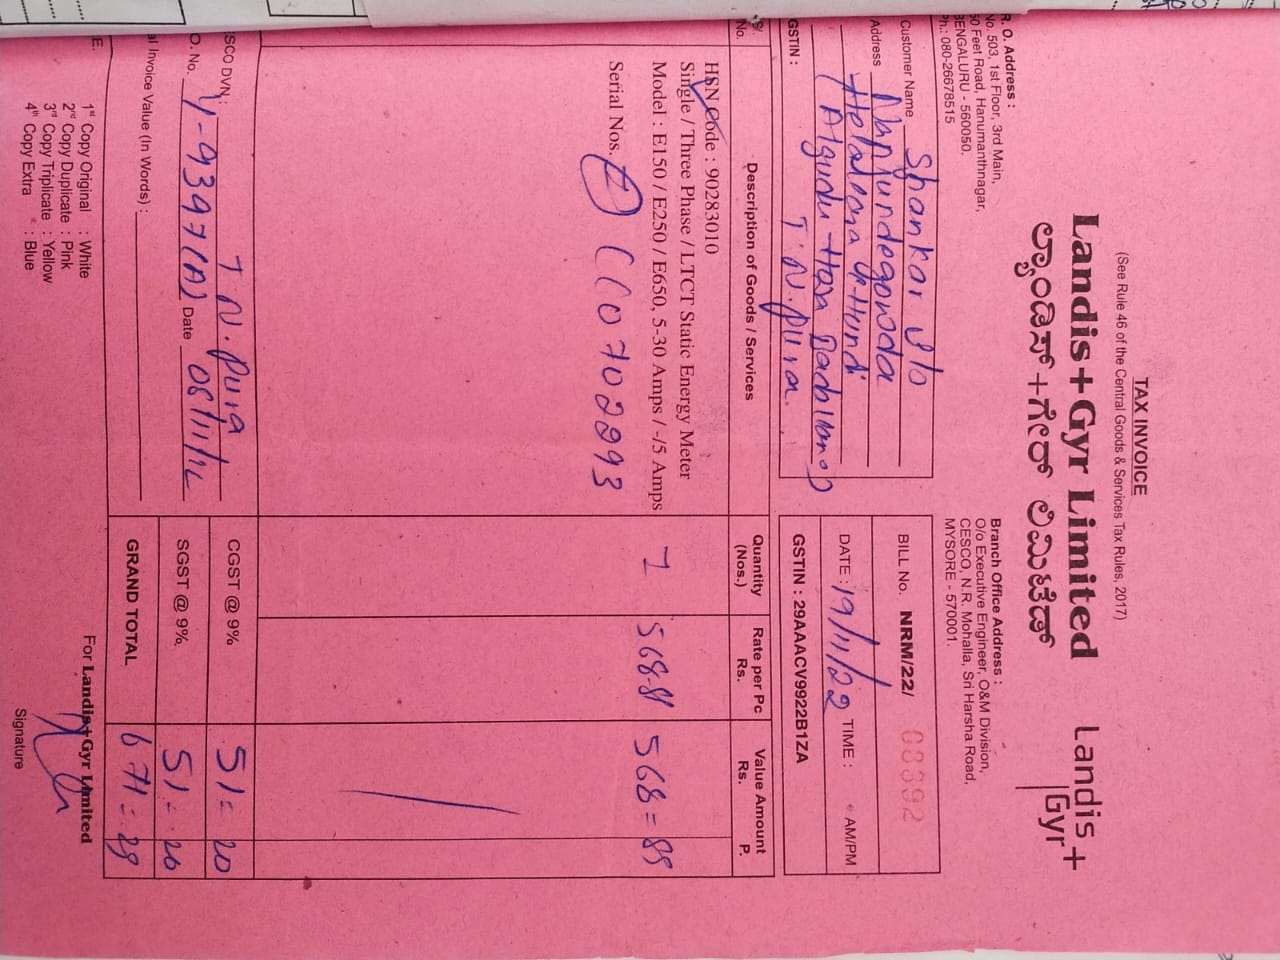 TAX INVOICE
(See Rule 46 of the Central Goods & Services Tax Rules, 2017)
Landis+Gyr Limited
ಲ್ಯಾಂಡಿಸ್+ಗೇರ್ ಲಿಮಿಟೆಡ್
Landis+
Gyr
R. O. Address :
No. 503, 1st Floor, 3rd Main,
50 Feet Road, Hanumanthnagar,
BENGALURU - 560050.
Ph.: 080-26678515
Branch Office Address :
O/o Executive Engineer, O&M Division,
CESCO, N.R. Mohalla, Sri Harsha Road,
MYSORE - 570001.
Customer Name Shankar S/o
Address Nanjundegowda
T. N. pura.
GSTIN :
BILL No. NRM/22/ 08392
DATE : 19/11/22 TIME : AM/PM
GSTIN : 29AAACV9922B1ZA
Sl. No. Description of Goods / Services Quantity (Nos.) Rate per Pc Rs. Value Amount Rs. P.
HSN Code : 90283010
Single / Three Phase / LTCT Static Energy Meter
Model : E150 / E250 / E650, 5-30 Amps / -/5 Amps 1 568-89 568 = 89
Serial Nos. 0702293
SCO DVN : T. N. pura CGST @ 9% 51 = 20
O. No. Date SGST @ 9% 51 = 20
al Invoice Value (In Words) : GRAND TOTAL 671 = 29
E.
1st Copy Original : White
2nd Copy Duplicate : Pink
3rd Copy Triplicate : Yellow
4th Copy Extra : Blue
For Landis+Gyr Limited
Signature